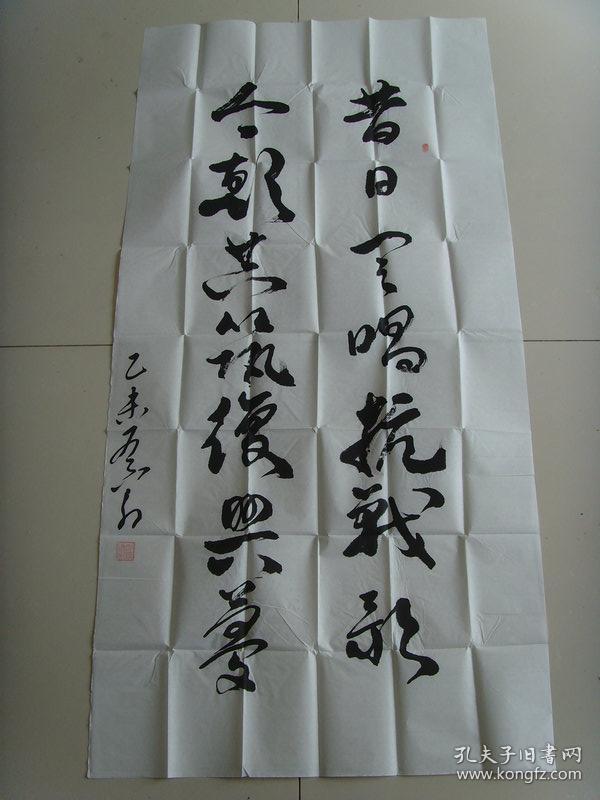 昔日唱抗戰歌
今朝共筑復興夢
乙未
孔夫子旧书网
www.kongfz.com